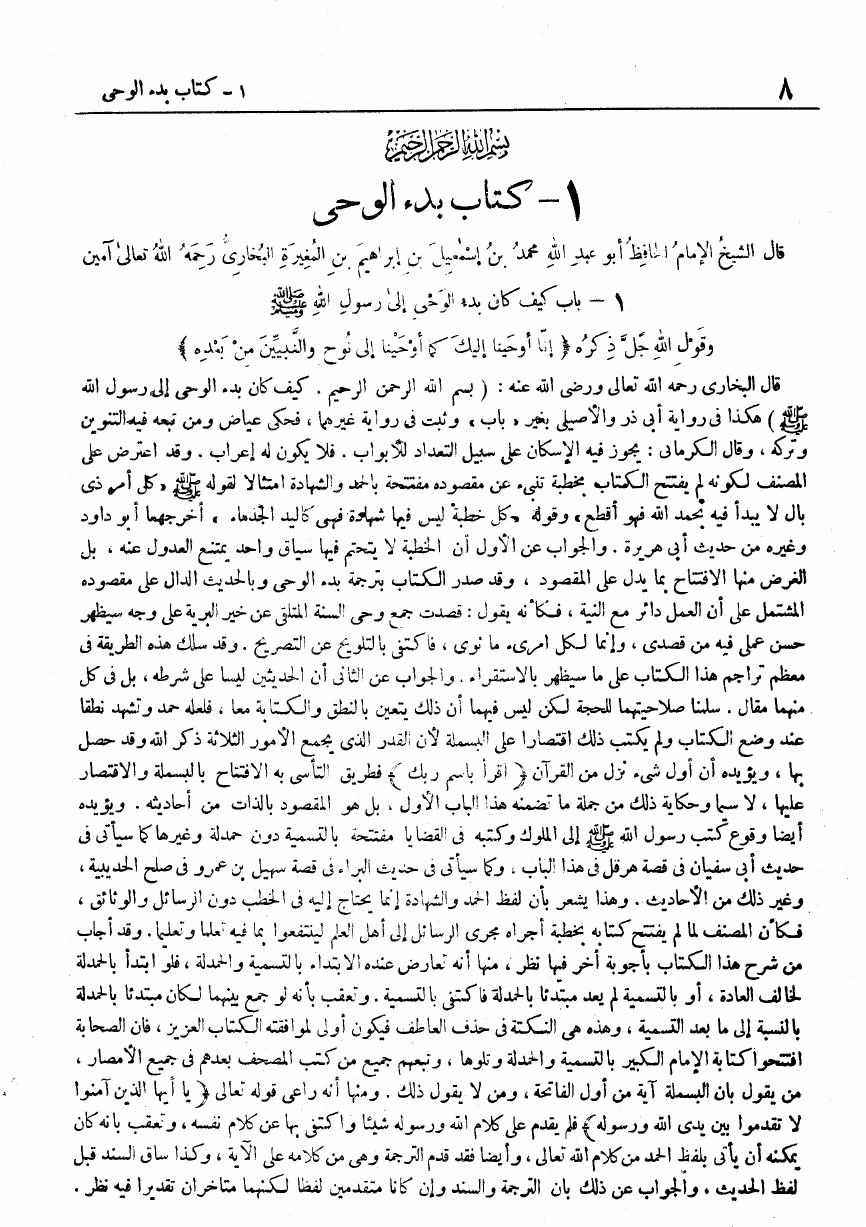 ٨
١ - كتاب بدء الوحى
بسم الله الرحمن الرحيم
١ - كتاب بدء الوحى
قال الشيخُ الإمامُ الحافِظُ أبو عبدِ اللهِ محمدُ بنُ إسْمٰعِيلَ بنِ إبراهيمَ بنِ المُغِيرَةِ البُخارِىُّ رَحِمَهُ اللهُ تعالىٰ آمين
١ - باب كيف كان بَدءُ الوَحْىِ إلىٰ رسولِ اللهِ ﷺ
وقَوْلِ اللهِ جَلَّ ذِكرُه ﴿ إنّا أوحَينا إليكَ كما أوْحَيْنا إلى نُوحٍ والنَّبِيِّينَ مِنْ بَعْدِه ﴾
قال البخارى رحمه الله تعالى ورضى الله عنه : ( بسم الله الرحمن الرحيم . كيف كان بدء الوحى إلى رسول الله
ﷺ ) هكذا فى رواية أبى ذر والأصيلى بغير « باب » وثبت فى رواية غيرهما ، فحكى عياض ومن تبعه فيه التنوين
وتركه ، وقال الكرمانى : يجوز فيه الإسكان على سبيل التعداد للأبواب . فلا يكون له إعراب . وقد اعترض على
المصنف لكونه لم يفتتح الكتاب بخطبة تنبىء عن مقصوده مفتتحة بالحمد والشهادة امتثالا لقوله ﷺ « كل أمر ذى
بال لا يبدأ فيه بحمد الله فهو أقطع » وقوله « كل خطبة ليس فيها شهادة فهى كاليد الجذماء » أخرجهما أبو داود
وغيره من حديث أبى هريرة . والجواب عن الأول أن الخطبة لا يتحتم فيها سياق واحد يمتنع العدول عنه ، بل
الغرض منها الافتتاح بما يدل على المقصود ، وقد صدر الكتاب بترجمة بدء الوحى وبالحديث الدال على مقصوده
المشتمل على أن العمل دائر مع النية ، فكأنه يقول : قصدت جمع وحى السنة المتلقى عن خير البرية على وجه سيظهر
حسن عملى فيه من قصدى ، وإنما لكل امرىء ما نوى ، فاكتفى بالتلويح عن التصريح . وقد سلك هذه الطريقة فى
معظم تراجم هذا الكتاب على ما سيظهر بالاستقراء . والجواب عن الثانى أن الحديثين ليسا على شرطه ، بل فى كل
منهما مقال . سلمنا صلاحيتهما للحجة لكن ليس فيهما أن ذلك يتعين بالنطق والكتابة معا ، فلعله حمد وتشهد نطقا
عند وضع الكتاب ولم يكتب ذلك اقتصارا على البسملة لأن القدر الذى يجمع الأمور الثلاثة ذكر الله وقد حصل
بها ، ويؤيده أن أول شىء نزل من القرآن ﴿ اقرأ باسم ربك ﴾ فطريق التأسى به الافتتاح بالبسملة والاقتصار
عليها ، لا سيما وحكاية ذلك من جملة ما تضمنه هذا الباب الأول ، بل هو المقصود بالذات من أحاديثه . ويؤيده
أيضا وقوع كتب رسول الله ﷺ إلى الملوك وكتبه فى القضايا مفتتحة بالتسمية دون حمدلة وغيرها كما سيأتى فى
حديث أبى سفيان فى قصة هرقل فى هذا الباب ، وكما سيأتى فى حديث البراء فى قصة سهيل بن عمرو فى صلح الحديبية ،
وغير ذلك من الأحاديث . وهذا يشعر بأن لفظ الحمد والشهادة إنما يحتاج إليه فى الخطب دون الرسائل والوثائق ،
فكأن المصنف لما لم يفتتح كتابه بخطبة أجراه مجرى الرسائل إلى أهل العلم لينتفعوا بما فيه تعلما وتعليما . وقد أجاب
من شرح هذا الكتاب بأجوبة أخر فيها نظر ، منها أنه تعارض عنده الابتداء بالتسمية والحمدلة ، فلو ابتدأ بالحمدلة
لخالف العادة ، أو بالتسمية لم يعد مبتدئا بالحمدلة فاكتفى بالتسمية . وتعقب بأنه لو جمع بينهما لكان مبتدئا بالحمدلة
بالنسبة إلى ما بعد التسمية ، وهذه هى النكتة فى حذف العاطف فيكون أولى لموافقته الكتاب العزيز ، فان الصحابة
افتتحوا كتابة الإمام الكبير بالتسمية والحمدلة وتلوها ، وتبعهم جميع من كتب المصحف بعدهم فى جميع الأمصار ،
من يقول بان البسملة آية من أول الفاتحة ، ومن لا يقول ذلك . ومنها أنه راعى قوله تعالى ﴿ يا أيها الذين آمنوا
لا تقدموا بين يدى الله ورسوله ﴾ فلم يقدم على كلام الله ورسوله شيئا واكتفى بها عن كلام نفسه ، وتعقب بانه كان
يمكنه أن يأتى بلفظ الحمد من كلام الله تعالى ، وأيضا فقد قدم الترجمة وهى من كلامه على الآية ، وكذا ساق السند قبل
لفظ الحديث ، والجواب عن ذلك بان الترجمة والسند وإن كانا متقدمين لفظا لكنهما متاخران تقديرا فيه نظر .